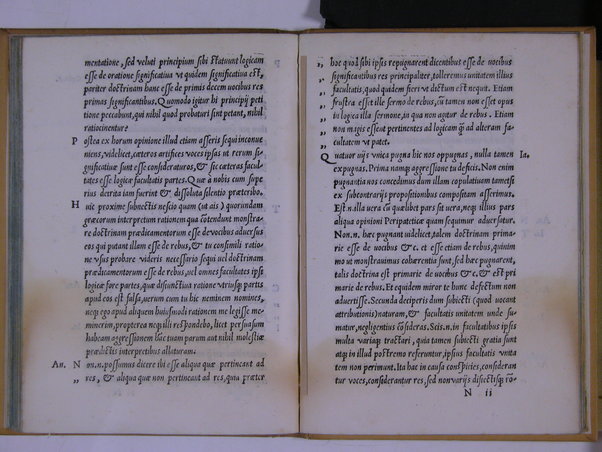 mentatione, sed veluti principium sibi statuunt logicam
esse de oratione significatiua vt quidem significatiua est,
pariter doctrinam hanc esse de primis decem uocibus res
primas significantibus. Quomodo igitur hi principij peti
tione peccabunt, qui nihil quod probaturi sint petant, nihil
ratiocinentur?
P ostea ex horum opinione illud etiam asseris sequi inconue
niens, videlicet, cæteros artifices voces ipsas ut rerum si-
gnificatiuæ sunt esse consideraturos, & sic cæteras facul-
tates esse logicæ facultatis partes. Quæ à nobis cum supe
rius detrita iam fuerint & dissoluta silentio præteribo.
H uic proxime subiectis nescio quam (ut ais) quorundam
græcorum interpretum rationem qua contendunt monstra-
re doctrinam prædicamentorum esse de vocibus aduersus
eos qui putant illam esse de rebus, & tu consimili ratio
ne vsus probare videris necessario sequi uel doctrinam
prædicamentorum esse de rebus, uel omnes facultates ipsi
logicæ fore partes, quæ disiunctiua ratione vtriusq; partis
apud eos est falsa, uerum cum tu hic neminem nomines,
neq; ego apud aliquem huiusmodi rationem me legisse me-
minerim, propterea neq; illi respondebo, licet persuasum
habeam aggressionem hãc tuam parum aut nihil molestiæ
prædictis interpretibus allaturam.
An. N on.n. possumus dicere ibi esse aliqua quæ pertineant ad
„ res, & aliqua quæ non pertineant ad res, quia præter
„ hoc quod sibi ipsis repugnarent dicentibus esse de uocibus
„ significantibus res principaliter, tolleremus unitatem illius
„ facultatis, quod quidem fieri vt dictum est nequit. Etiam
„ frustra esset ille sermo de rebus, cũ tamen non esset opus
„ in logica illa sermone, in qua non agitur de rebus. Etiam
„ non magis esset pertinentes ad logicam q̃ ad alteram fa-
„ cultatem vt patet.
Q uatuor uijs vnica pugna hic nos oppugnas, nulla tamen Ia.
ex pugnas. Prima namq; aggressione tu deficis. Non enim
pugnantia nos concedimus dum illam copulatiuam tametsi
ex subcontrarijs propositionibus compositam asserimus.
Est.n. illa uera cũ quælibet pars sit uera, neq; illius pars
aliqua opinioni Peripateticæ quam sequimur aduersatur.
Non.n. hæc pugnant uidelicet, talem doctrinam primo
rie esse de uocibus & c. et esse etiam de rebus, quinim
mo ut monstrauimus cohærentia sunt, sed hæc pugnarent,
talis doctrina est primarie de uocibus & c, & est pri
marie de rebus. Et equidem miror te hunc defectum non
aduertisse. Secunda deciperis dum subiecti (quod uocant
attributionis) naturam, & facultatis unitatem unde su-
matur, negligentius cõsideras. Scis.n. in facultatibus ipsis
multa variaq; tractari, quia tamen subiecti gratia sunt
atq; in illud postremo referuntur, ipsius facultatis vnita
tem non perimunt. Ita hac in causa cõspicies, consideran
tur voces, considerantur res, sed non varijs disiectisq; rõ-
N ii